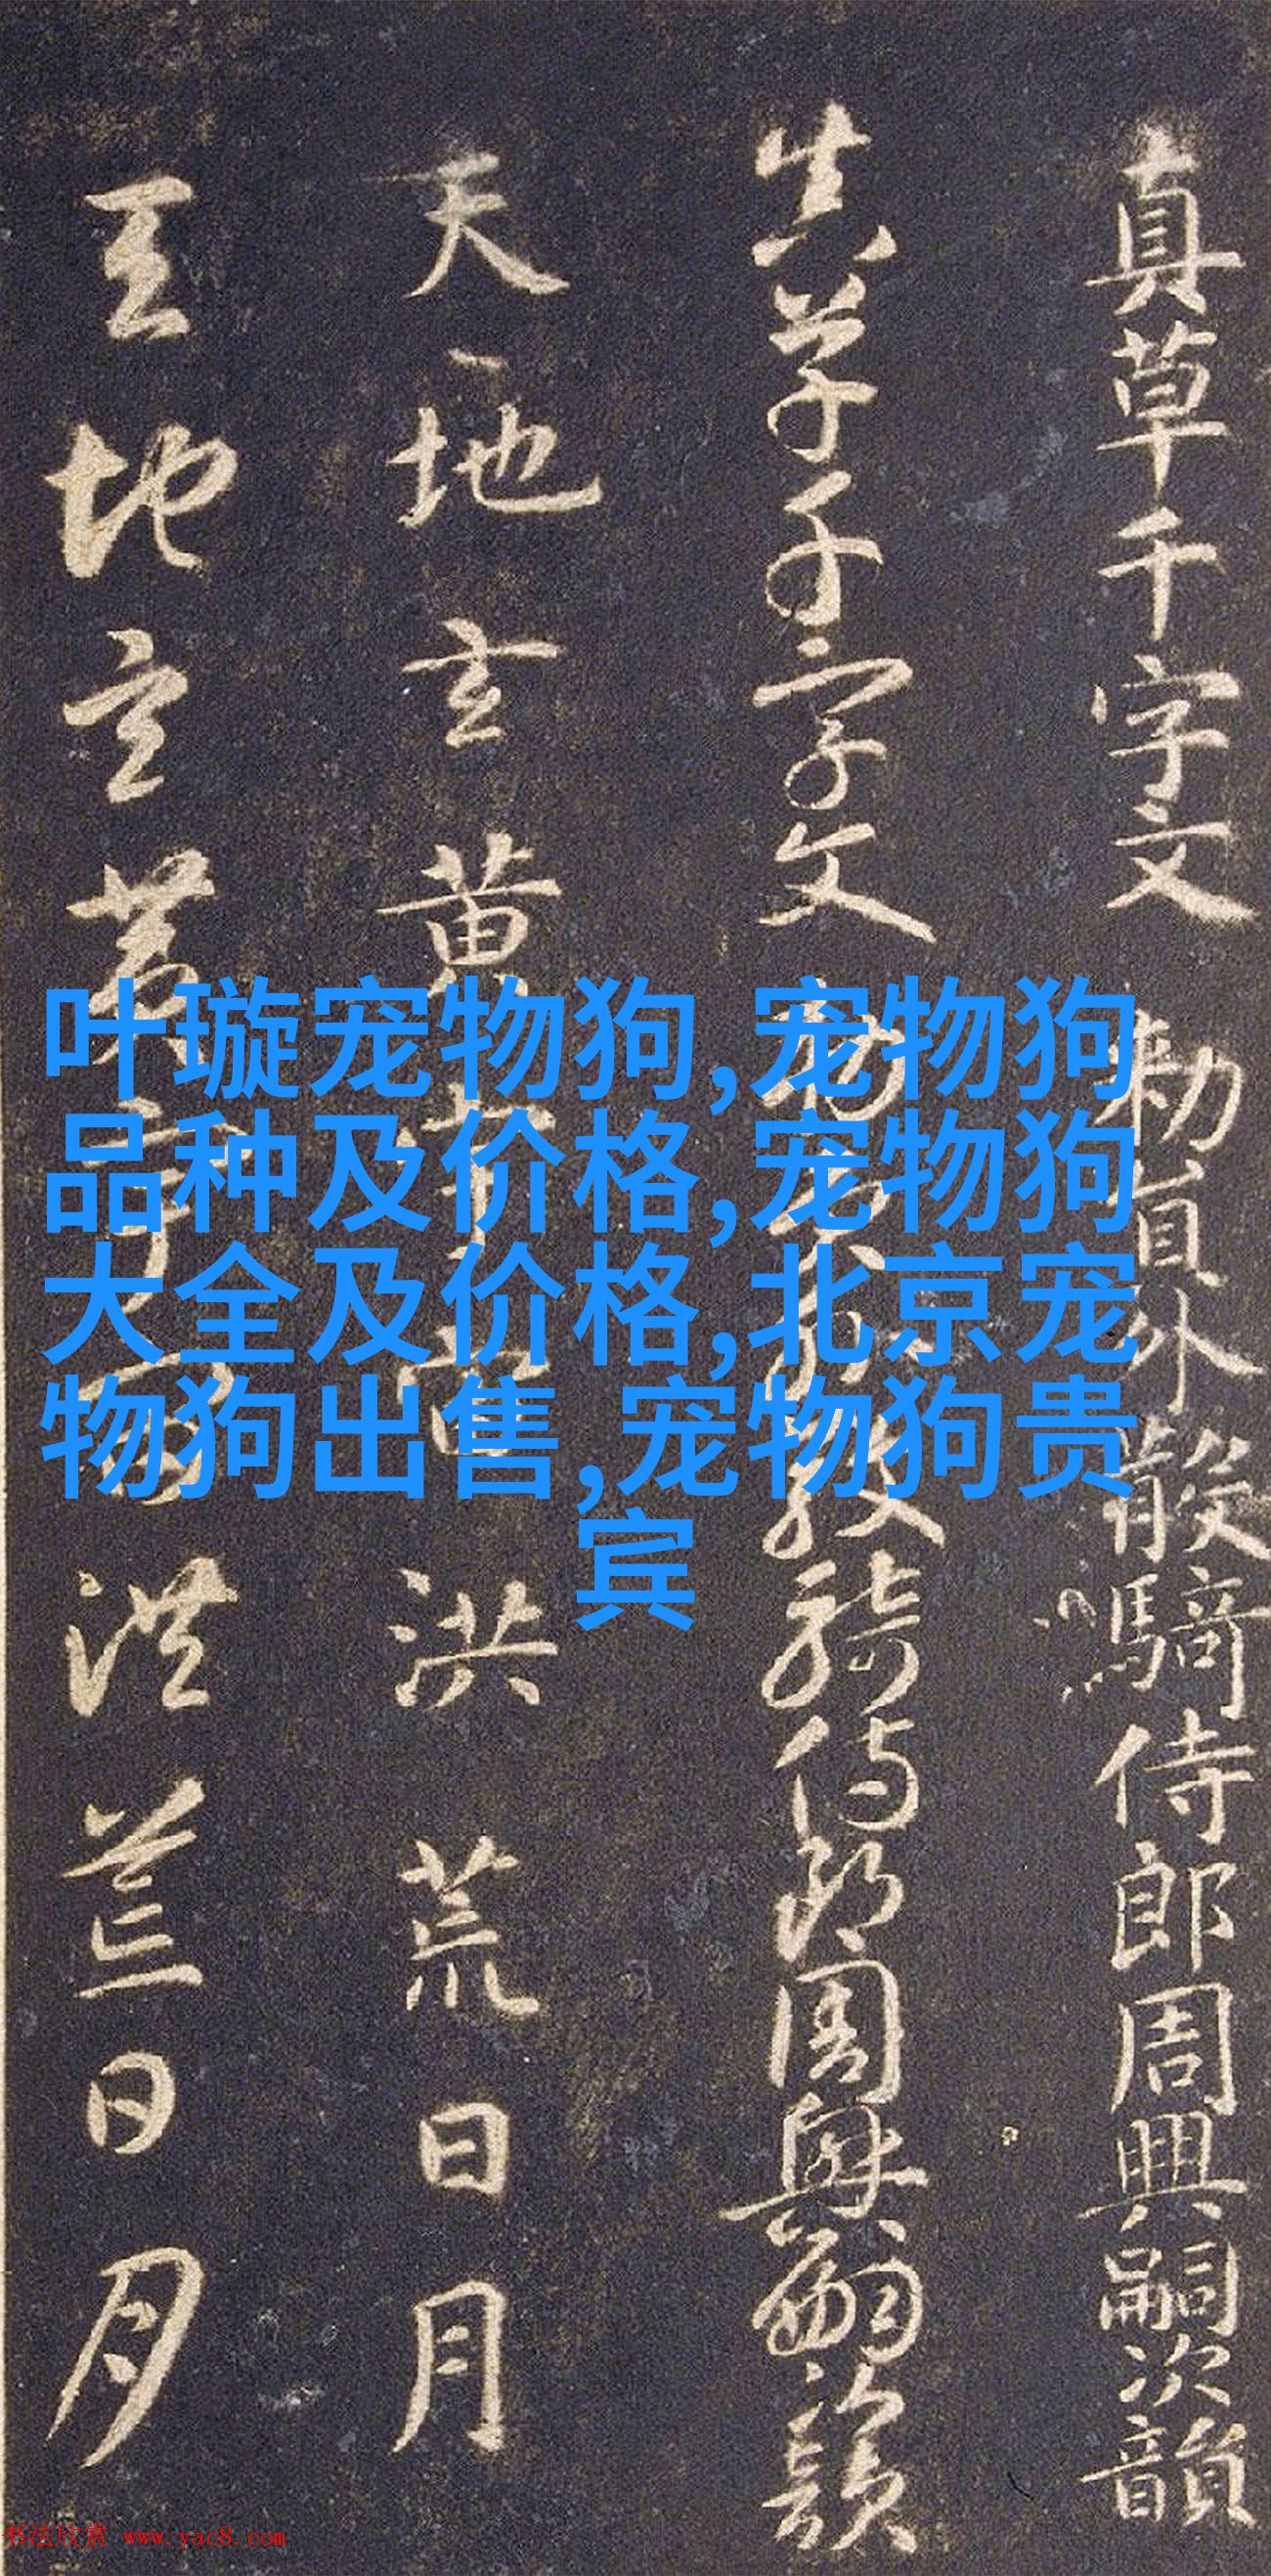 真草千字文 勅員外散騎侍郎周興嗣次韻
真草千字文 勅員外散騎侍郎周興嗣次韻
天地玄黄宇宙洪荒日月
天地玄黄宇宙洪荒日月
叶璇宠物狗,宠物狗
品种及价格,宠物狗
大全及价格,北京宠
物狗出售,宠物狗贵
宾
书法欣赏 www.yac8.com